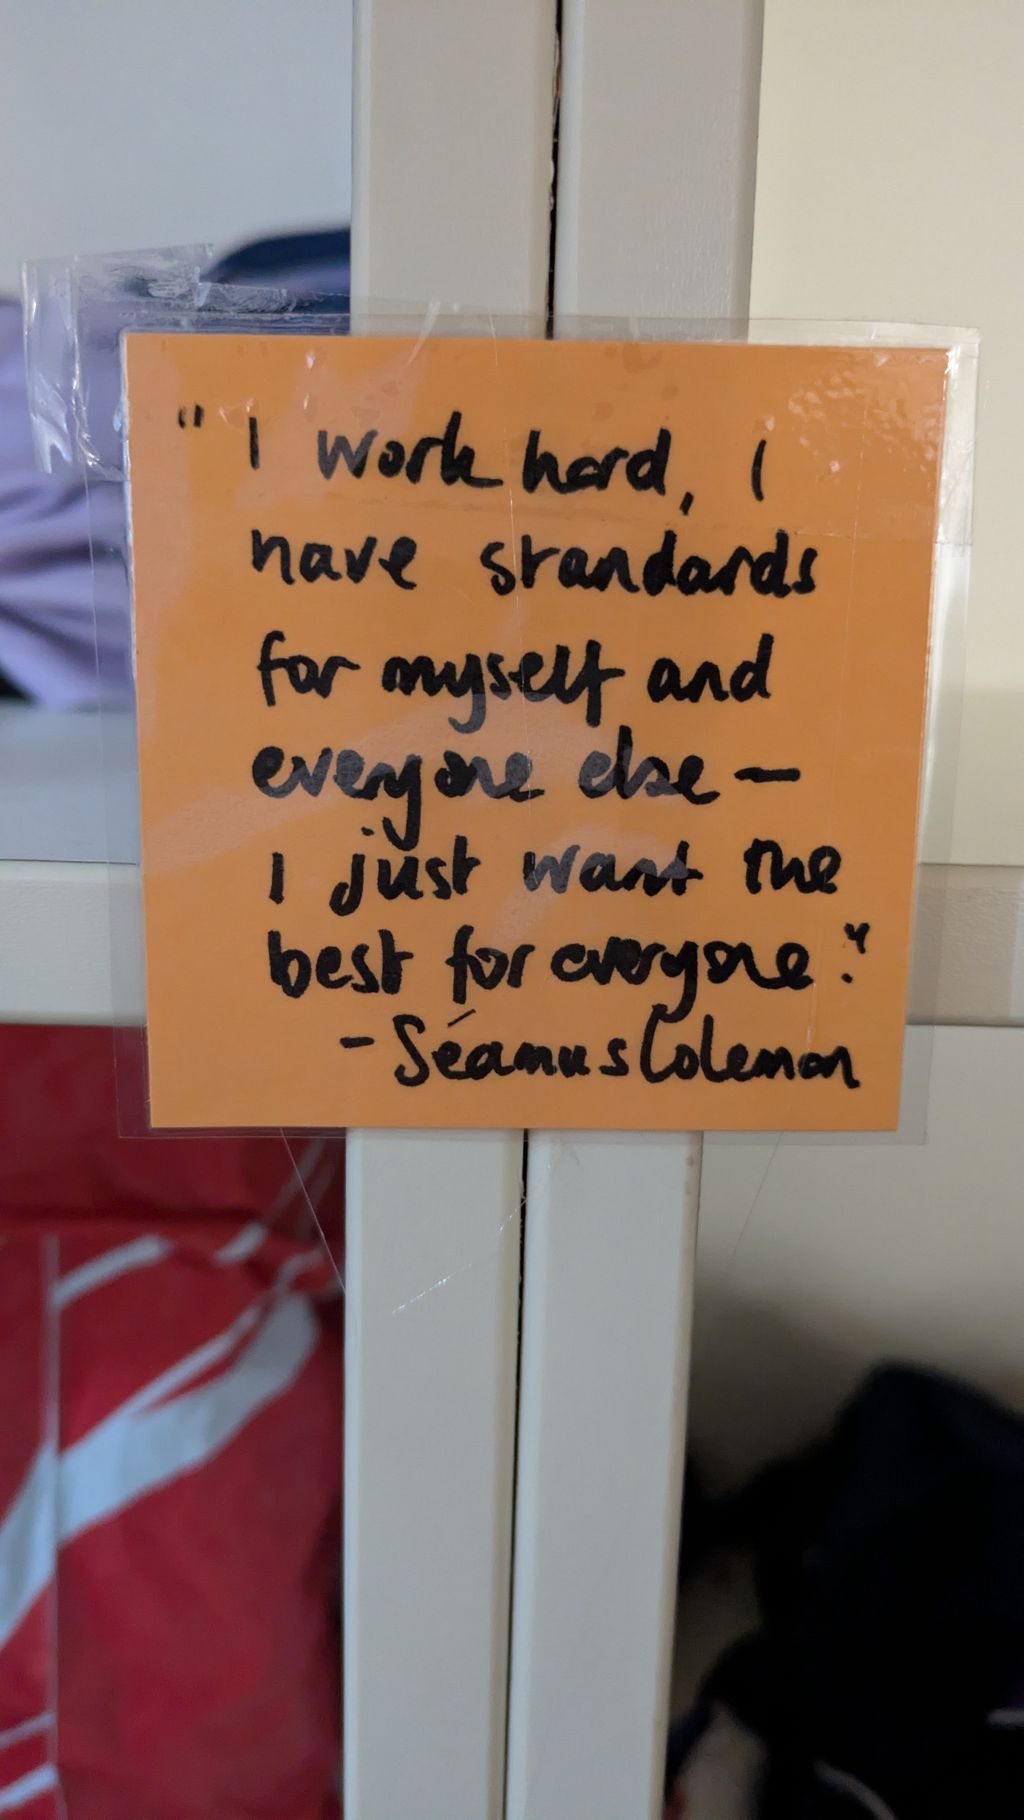 "I work hard, I
have standards
for myself and
everyone else –
I just want the
best for everyone."
- Séamus Coleman